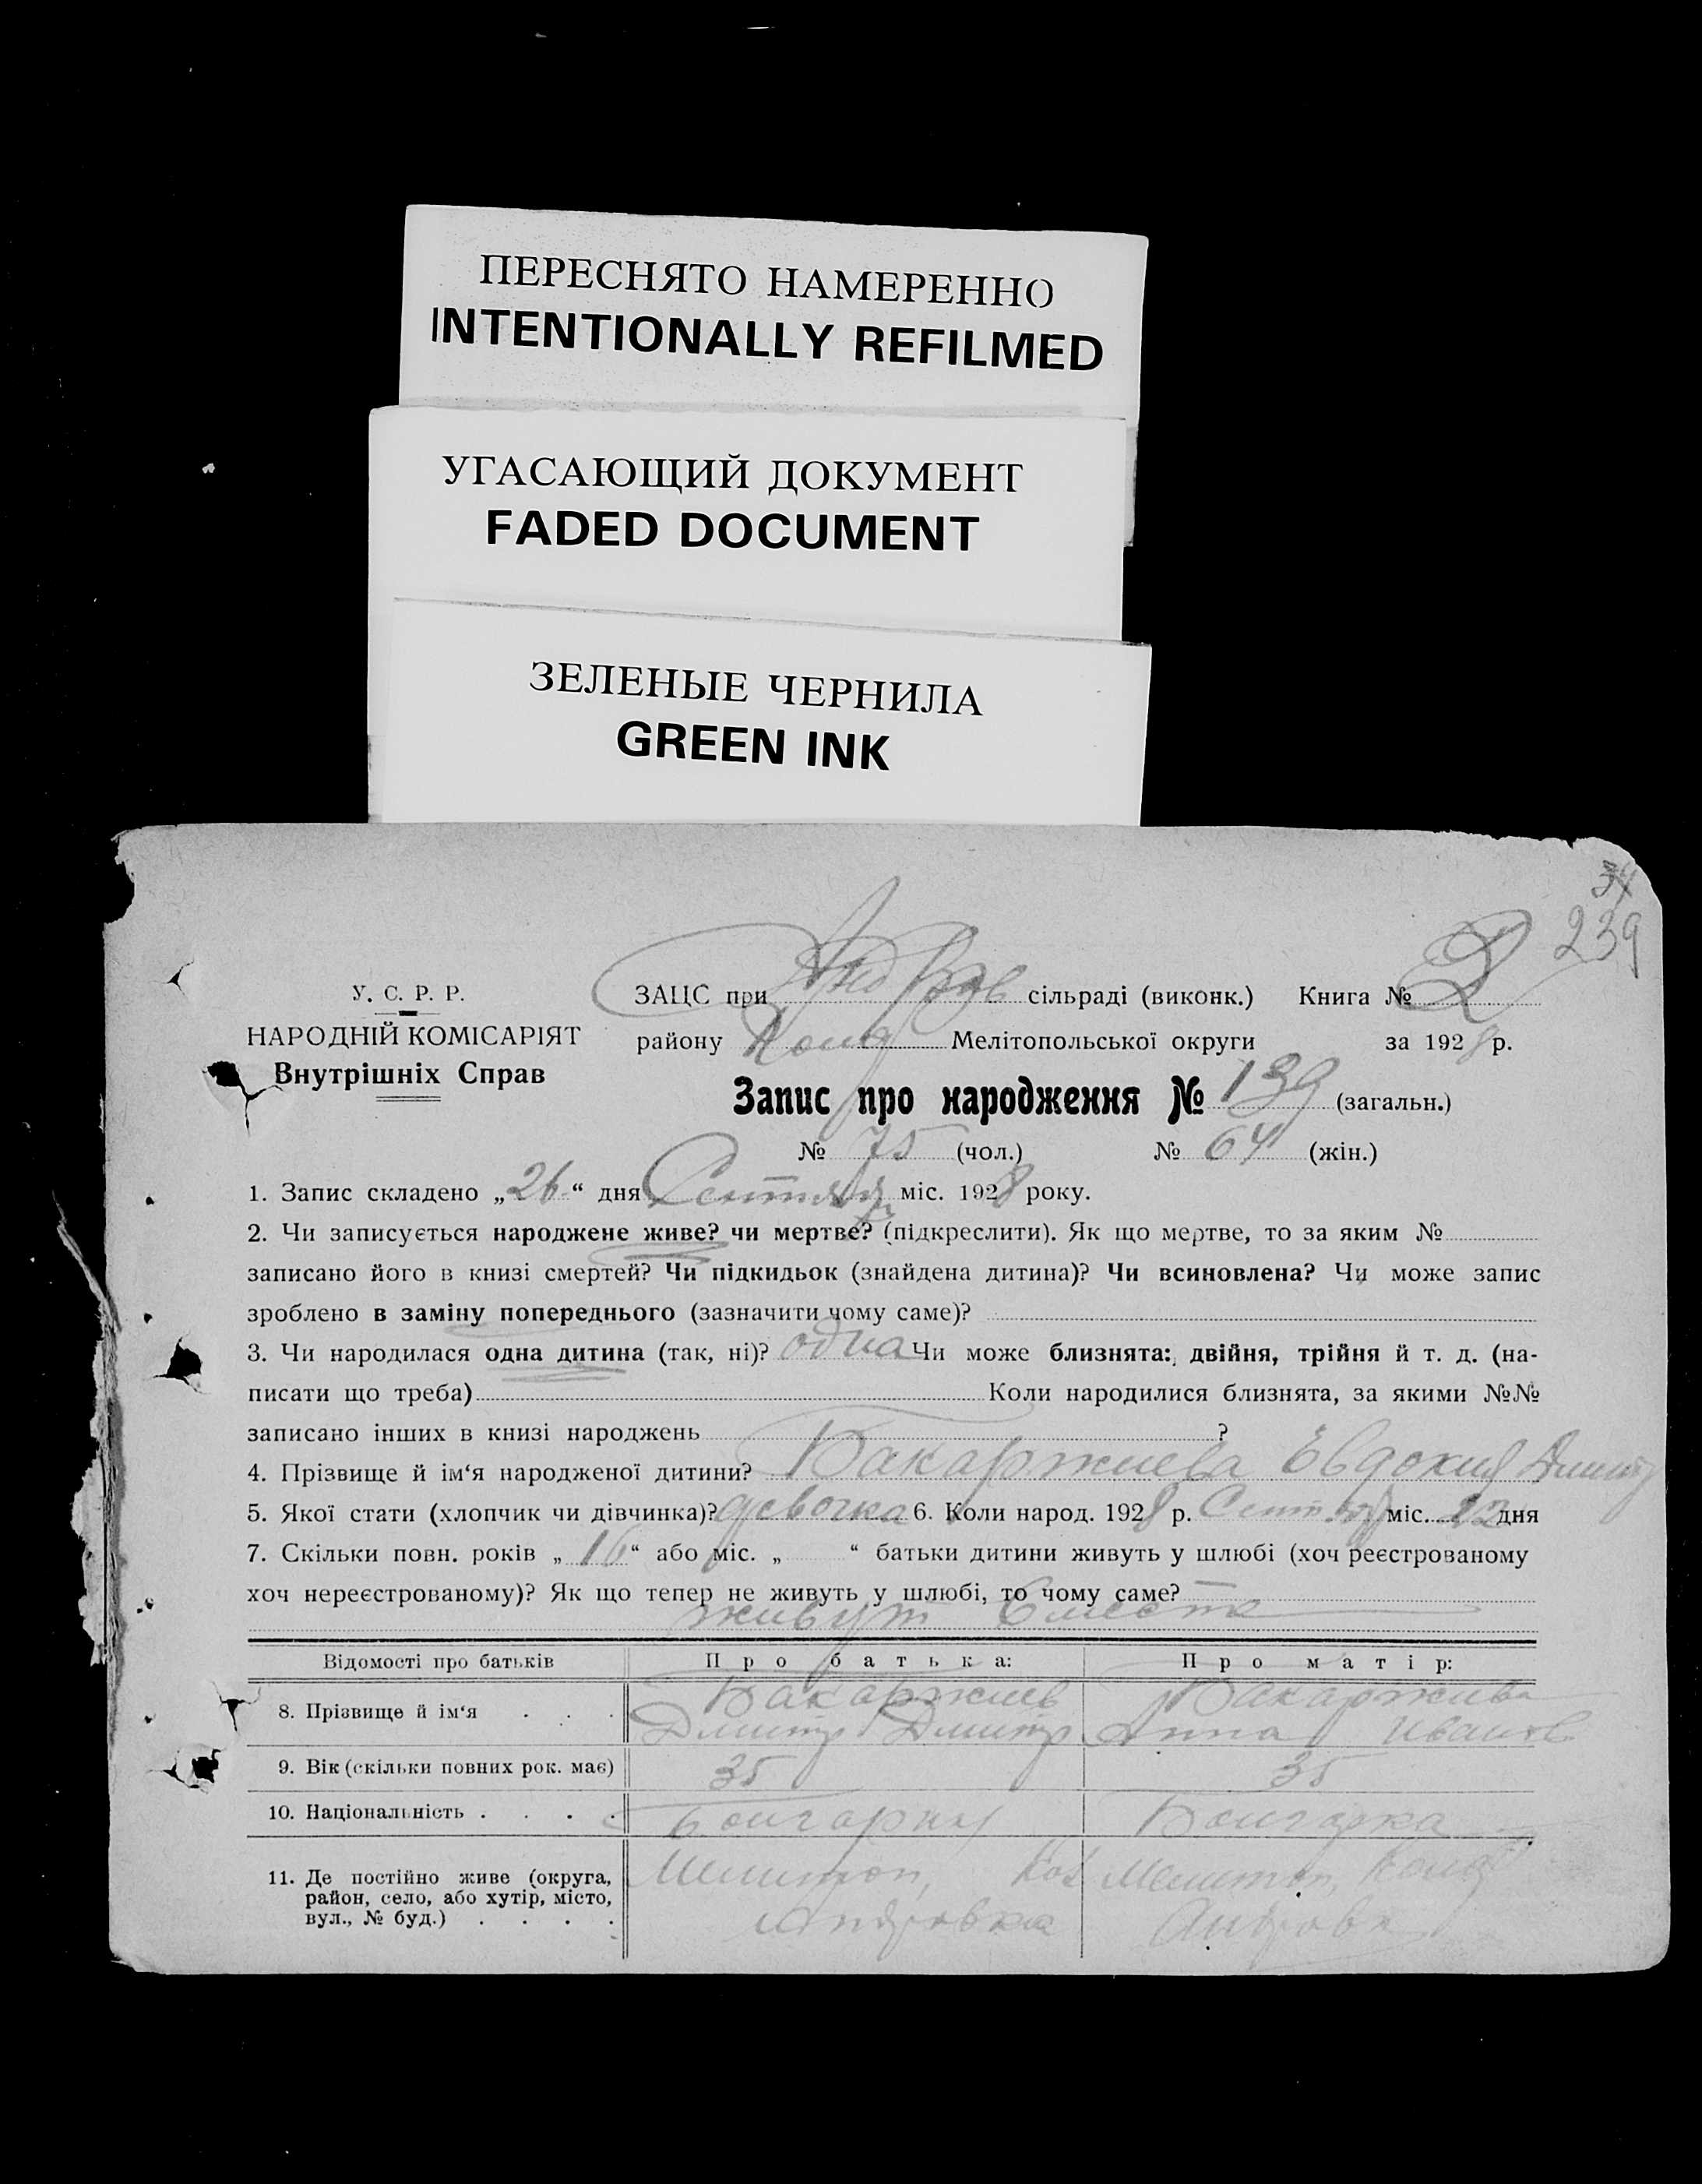 ПЕРЕСНЯТО НАМЕРЕННО
INTENTIONALLY REFILMED
УГАСАЮЩИЙ ДОКУМЕНТ
FADED DOCUMENT
ЗЕЛЕНЫЕ ЧЕРНИЛА
GREEN INK
34
239
У. С. Р. Р.
НАРОДНІЙ КОМІСАРІЯТ
Внутрішніх Справ
ЗАЦС при сільраді (виконк.) Книга №
району Мелітопольської округи за 1928 р.
Запис про народження № 139 (загальн.)
№ 75 (чол.) № 64 (жін.)
1. Запис складено „26“ дня міс. 1928 року.
2. Чи записується народжене живе? чи мертве? (підкреслити). Як що мертве, то за яким №
записано його в книзі смертей? Чи підкидьок (знайдена дитина)? Чи всиновлена? Чи може запис
зроблено в заміну попереднього (зазначити чому саме)?
3. Чи народилася одна дитина (так, ні)? одна Чи може близнята: двійня, трійня й т. д. (на-
писати що треба) Коли народилися близнята, за якими №№
записано інших в книзі народжень ?
4. Прізвище й ім‘я народженої дитини? Бакаржиева Евдокия
5. Якої стати (хлопчик чи дівчинка)? девочка 6. Коли народ. 1928 р. міс. дня
7. Скільки повн. років „16“ або міс. „ “ батьки дитини живуть у шлюбі (хоч реєстрованому
хоч нереєстрованому)? Як що тепер не живуть у шлюбі, то чому саме?
живут вместе
Відомості про батьків Про батька: Про матір:
8. Прізвище й ім‘я . . . Бакаржиев
Дмитр Дмитр Анна Иванов
9. Вік (скільки повних рок. має) 35 35
10. Національність . . . . Болгарка
11. Де постійно живе (округа,
район, село, або хутір, місто,
вул., № буд.) . . . .